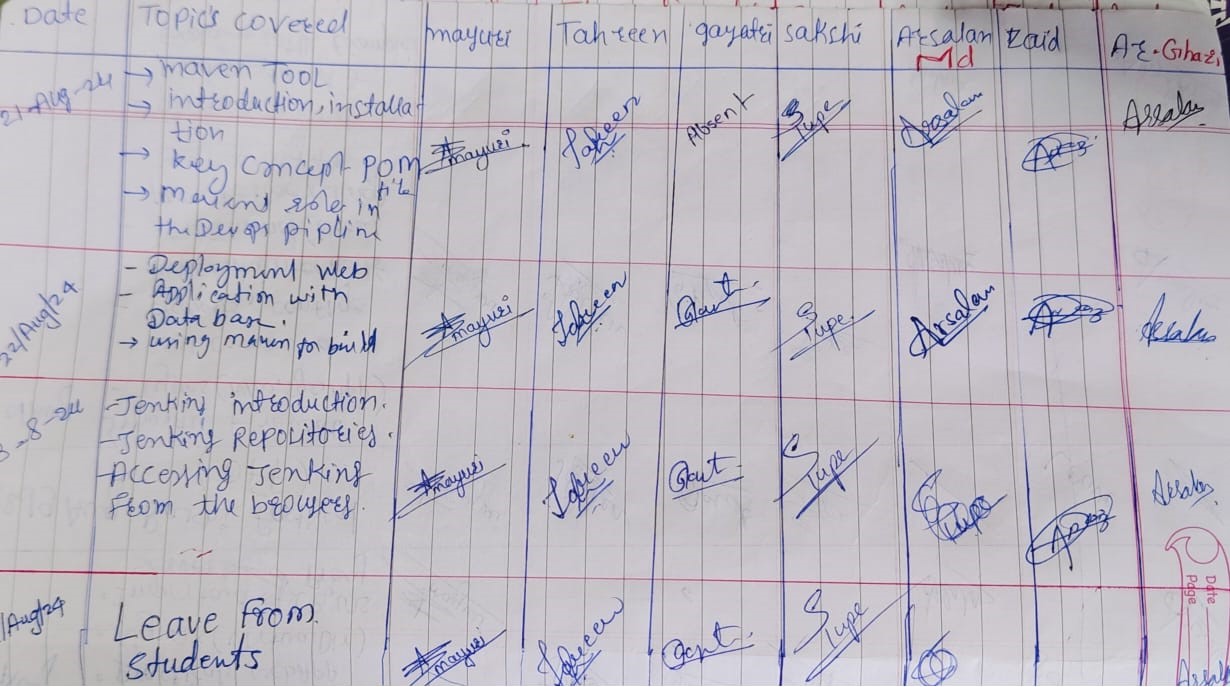 Date Topics covered mayuri Tahreen gayatri sakshi Arsalan zaid Ar. Ghazi
Md
21-Aug-24 → maven TOOL
→ introduction, installa
tion
→ key concept POM
file
→ maven's role in
the Devops pipline
mayuri Tahreen Absent STupe Arsalan Arsalan
22/Aug/24 - Deployment web
- Application with
Data base.
→ using maven for build
mayuri Tahreen Gaut STupe Arsalan Arsalan
-8-24 -Jenking introduction.
-Jenking Repositories.
-Accessing Jenking
From the brousers.
mayuri Tahreen Gaut STupe STupe Arsalan
/Aug/24 Leave From
Students
mayuri Tahreen Gaut STupe
Date
Page